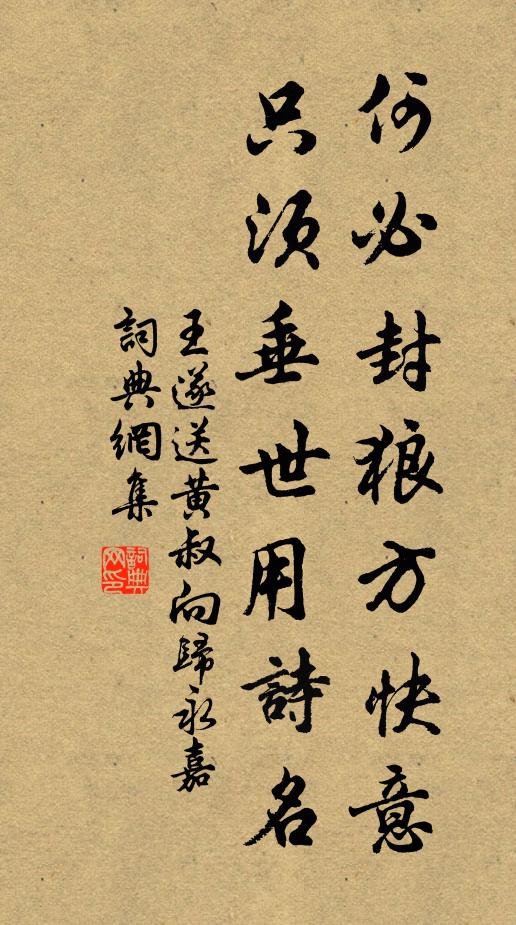 何必封狼方快意
只須垂世用詩名
王遂送黄叔向歸永嘉
詞典網集
詞典网印